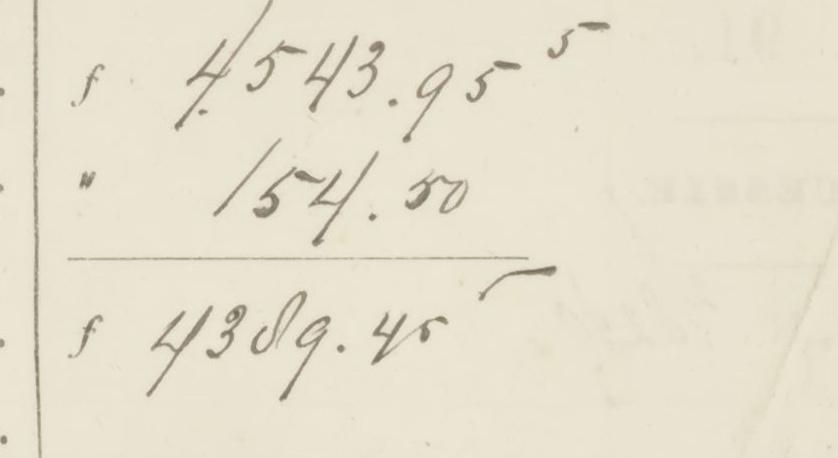 f 4543.95⁵
" 154.50
f 4389.45⁵